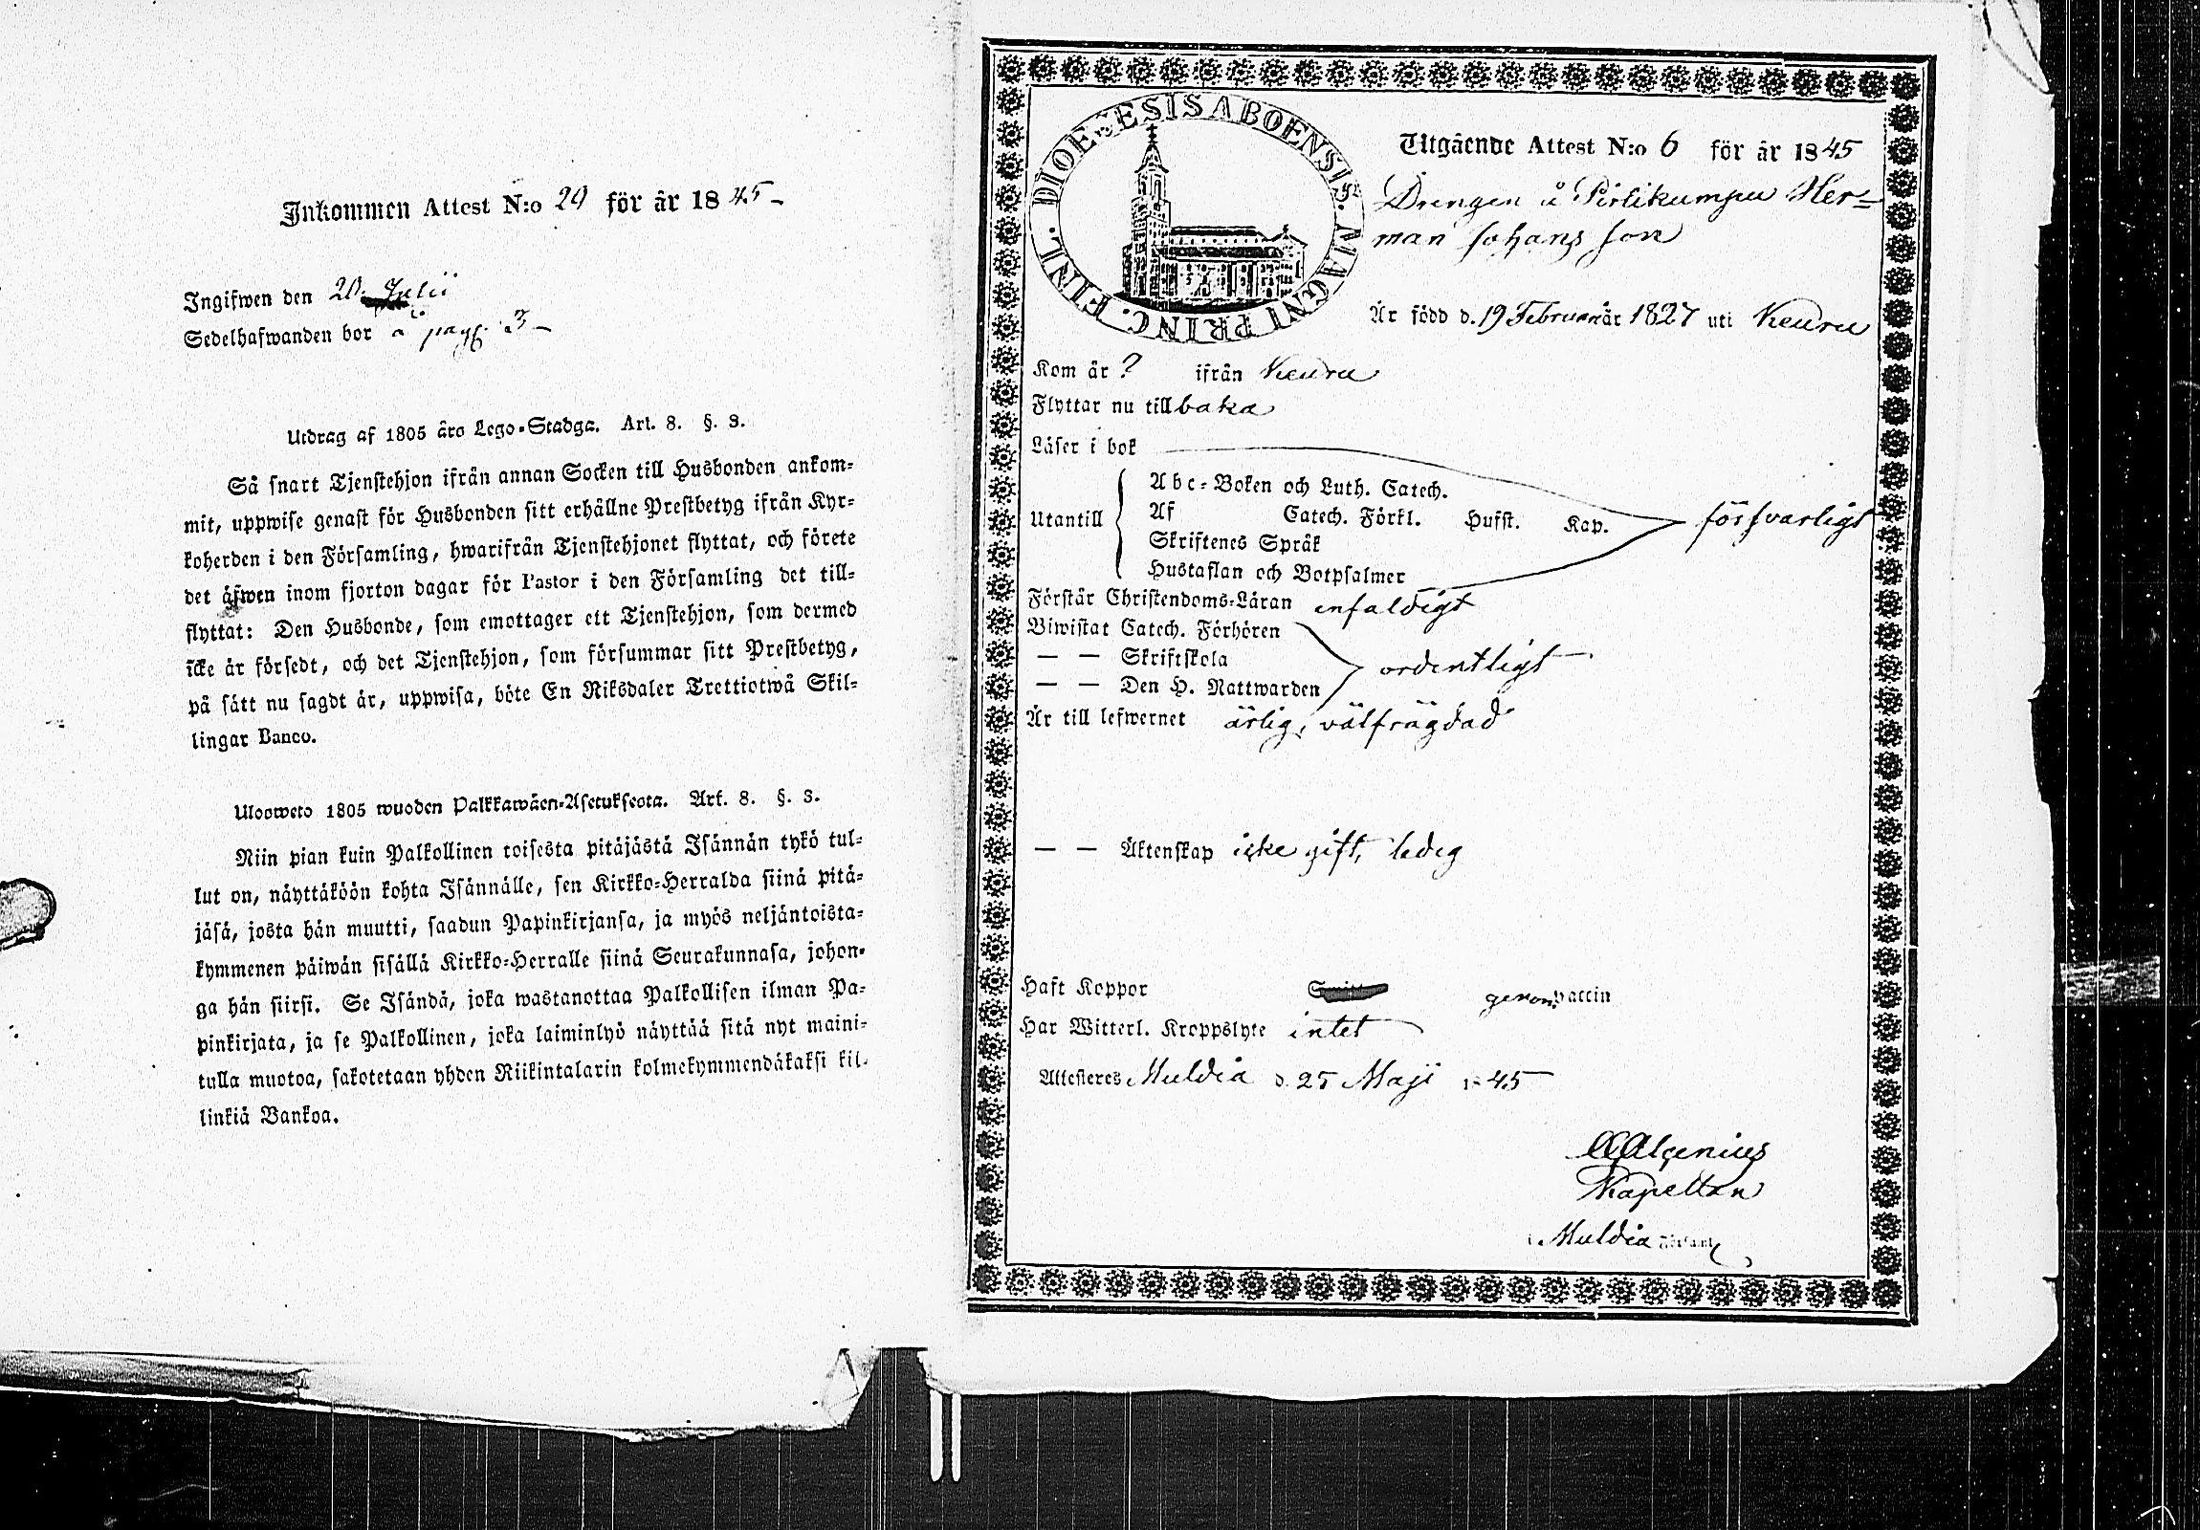 Inkommen Attest N:o 20 för år 1845 -
Ingifwen den 20 Julii
Sedelhafwanden bor å pag. 3 -
Utdrag af 1805 års Lego-Stadga. Art. 8. §. 3.
Så snart Tjenstehjon ifrån annan Socken till Husbonden ankom-
mit, uppwise genast för Husbonden sitt erhållne Prestbetyg ifrån Kyr-
koherden i den Församling, hwarifrån Tjenstehjonet flyttat, och förete
det äfwen inom fjorton dagar för Pastor i den Församling det till-
flyttat: Den Husbonde, som emottager ett Tjenstehjon, som dermed
icke är försedt, och det Tjenstehjon, som försummar sitt Prestbetyg,
på sätt nu sagdt är, uppwisa, böte En Riksdaler Trettiotwå Skil-
lingar Banco.
Ulosweto 1805 wuoden Palkkawäen-Asetuksesta. Art. 8. §. 3.
Niin pian kuin Palkollinen toisesta pitäjästä Isännän tykö tul-
lut on, näyttäköön kohta Isännälle, sen Kirkko-Herralda siinä pitä-
jäsä, josta hän muutti, saadun Papinkirjansa, ja myös neljäntoista-
kymmenen päiwän sisällä Kirkko-Herralle siinä Seurakunnasa, johon-
ga hän siirsi. Se Isändä, joka wastanottaa Palkollisen ilman Pa-
pinkirjata, ja se Palkollinen, joka laiminlyö näyttää sitä nyt maini-
tulla muotoa, sakotetaan yhden Riikintalarin kolmekymmendäkaksi kil-
linkiä Bankoa.
DIOECESIS ABOENSIS. MAGNI PRINC. FINL.
Utgående Attest N:o 6 för år 1845
Drengen å Pirlikumpu Her=
man Johans son
Är född d. 19 Februari år 1827 uti Keuru
Kom år ? ifrån Keuru
Flyttar nu tillbaka
Läser i bok
Abc-Boken och Luth. Catech.
Utantill Af Catech. Förkl. Husst. Kap. försvarligt
Skriftenes Språk
Hustaflan och Botpsalmer
Förstår Christendoms-Läran enfaldigt
Biwistat Catech. Förhören
— — Skriftskola ordentligt
— — Den H. Nattwarden
Är till lefwernet ärlig, välfrägdad
— — Äktenskap icke gift, ledig
Haft Koppor genom vaccin
Har Witterl. Kroppslyte intet
Attesteres Muldia d. 25 Maji 1845
Kapellan
i Muldia Församl.